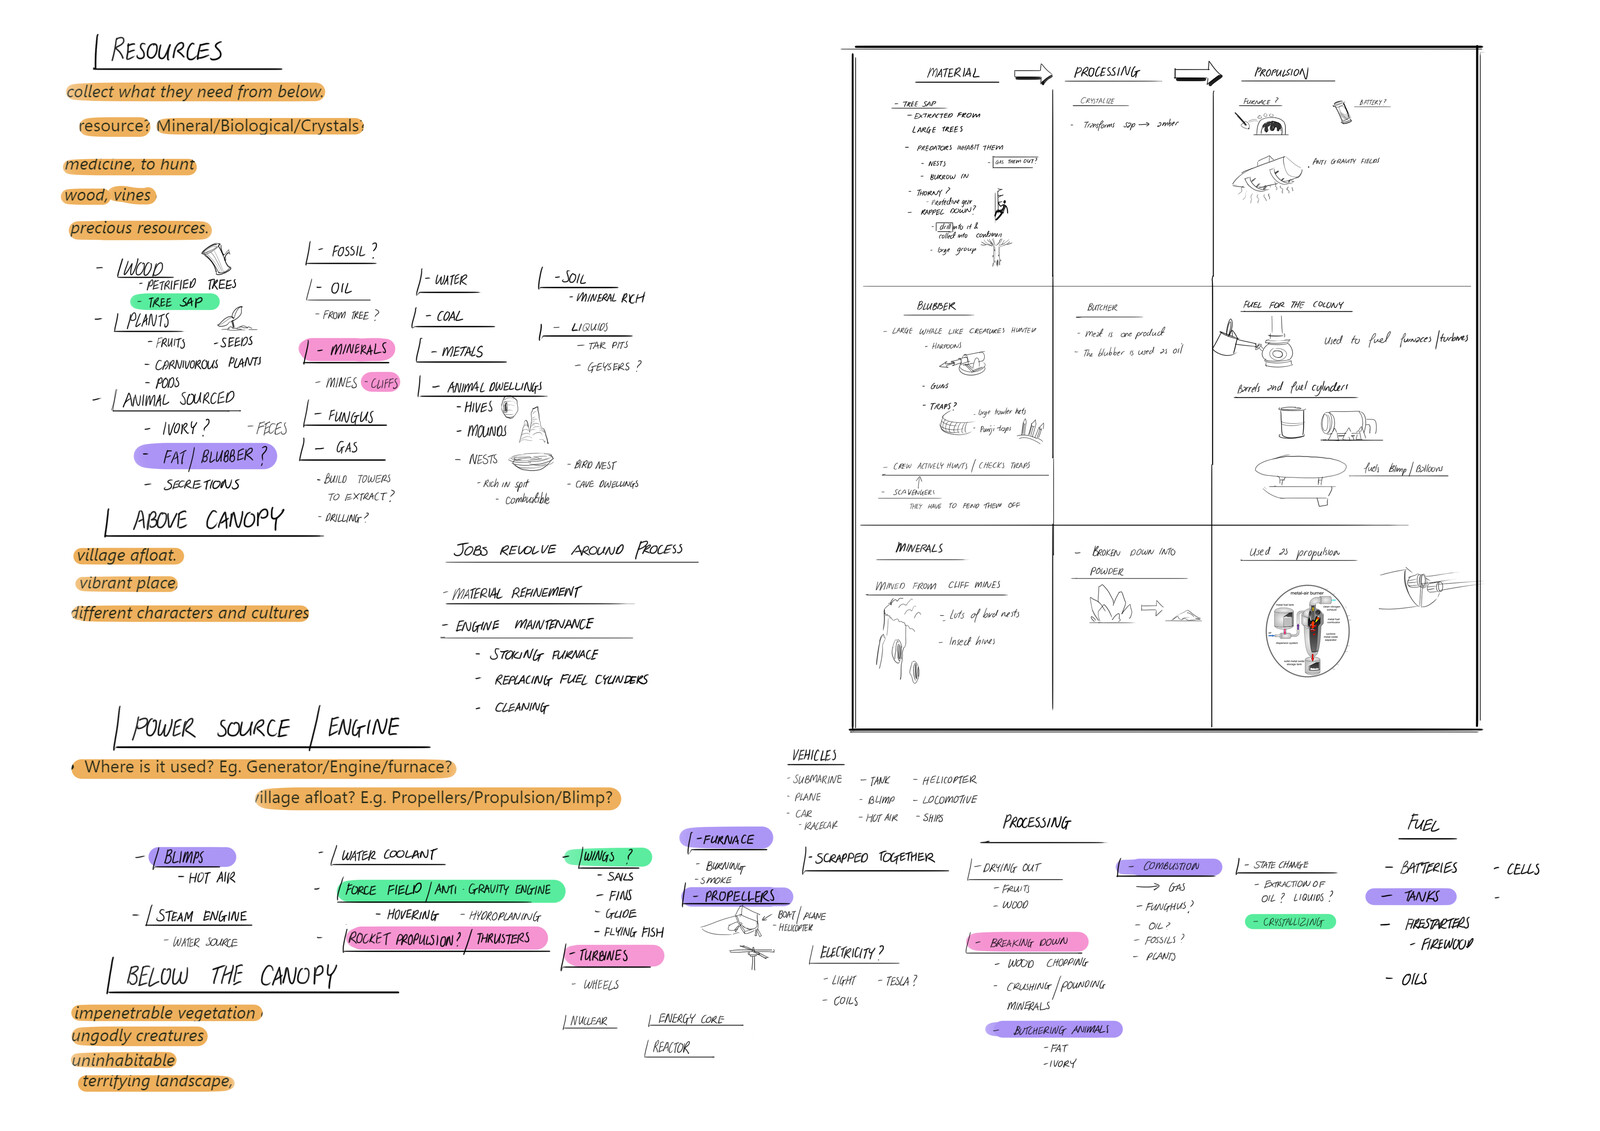 RESOURCES
collect what they need from below.
resource? Mineral/Biological/Crystals
medicine, to hunt
wood, vines
precious resources.
- WOOD
- PETRIFIED TREES
- TREE SAP
- PLANTS
- FRUITS - SEEDS
- CARNIVOROUS PLANTS
- PODS
- ANIMAL SOURCED
- IVORY? - FECES
- FAT/BLUBBER?
- SECRETIONS
- FOSSIL?
- OIL
- FROM TREE?
- MINERALS
- MINES - CLIFFS
- FUNGUS
- GAS
- BUILD TOWERS
TO EXTRACT?
- DRILLING?
- WATER
- COAL
- METALS
- ANIMAL DWELLINGS
- HIVES
- MOUNDS
- NESTS
- BIRD NEST
- CAVE DWELLINGS
- Rich in spit
- Combustible
- SOIL
- MINERAL RICH
- LIQUIDS
- TAR PITS
- GEYSERS?
ABOVE CANOPY
village afloat.
vibrant place
different characters and cultures
JOBS REVOLVE AROUND PROCESS
- MATERIAL REFINEMENT
- ENGINE MAINTENANCE
- STOKING FURNACE
- REPLACING FUEL CYLINDERS
- CLEANING
MATERIAL
PROCESSING
PROPULSION
- TREE SAP
- EXTRACTED FROM
LARGE TREES
- PREDATORS INHABIT THEM
- NESTS - GAS THEM OUT?
- BURROW IN
- THORNY?
- Protective gear
- RAPPEL DOWN?
- drill into it &
collect into container
- large group
CRYSTALIZE
- Transforms sap → amber
FURNACE?
BATTERY?
- ANTI GRAVITY FIELDS
BLUBBER
- LARGE WHALE LIKE CREATURES HUNTED
- HARPOONS
- GUNS
- TRAPS?
- large tower nets
- Punji traps
- CREW ACTIVELY HUNTS / CHECKS TRAPS
- SCAVENGERS
THEY HAVE TO FEND THEM OFF
BUTCHER
- Meat is one product
- The blubber is used as oil
FUEL FOR THE COLONY
Used to fuel furnaces/turbines
Barrels and fuel cylinders
fuels Blimp/Balloons
MINERALS
MINED FROM CLIFF MINES
- Lots of bird nests
- Insect hives
- BROKEN DOWN INTO
POWDER
Used as propulsion
metal-air burner
POWER SOURCE / ENGINE
Where is it used? Eg. Generator/Engine/furnace?
village afloat? E.g. Propellers/Propulsion/Blimp?
- BLIMPS
- HOT AIR
- STEAM ENGINE
- WATER SOURCE
- WATER COOLANT
- FORCE FIELD / ANTI-GRAVITY ENGINE
- HOVERING - HYDROPLANING
- ROCKET PROPULSION? / THRUSTERS
- WINGS?
- SAILS
- FINS
- GLIDE
- FLYING FISH
- TURBINES
- WHEELS
NUCLEAR
ENERGY CORE
REACTOR
- FURNACE
- BURNING
- SMOKE
- PROPELLERS
BOAT/PLANE
- HELICOPTER
VEHICLES
- SUBMARINE - TANK - HELICOPTER
- PLANE - BLIMP - LOCOMOTIVE
- CAR - HOT AIR - SHIPS
- RACECAR
- SCRAPPED TOGETHER
ELECTRICITY?
- LIGHT - TESLA?
- COILS
PROCESSING
- DRYING OUT
- FRUITS
- WOOD
- BREAKING DOWN
- WOOD CHOPPING
- CRUSHING/POUNDING
MINERALS
- BUTCHERING ANIMALS
- FAT
- IVORY
- COMBUSTION
→ GAS
- FUNGHUS?
- OIL?
- FOSSILS?
- PLANTS
- STATE CHANGE
- EXTRACTION OF
OIL? LIQUIDS?
- CRYSTALLIZING
FUEL
- BATTERIES - CELLS
- TANKS -
- FIRESTARTERS
- FIREWOOD
- OILS
BELOW THE CANOPY
impenetrable vegetation
ungodly creatures
uninhabitable
terrifying landscape,